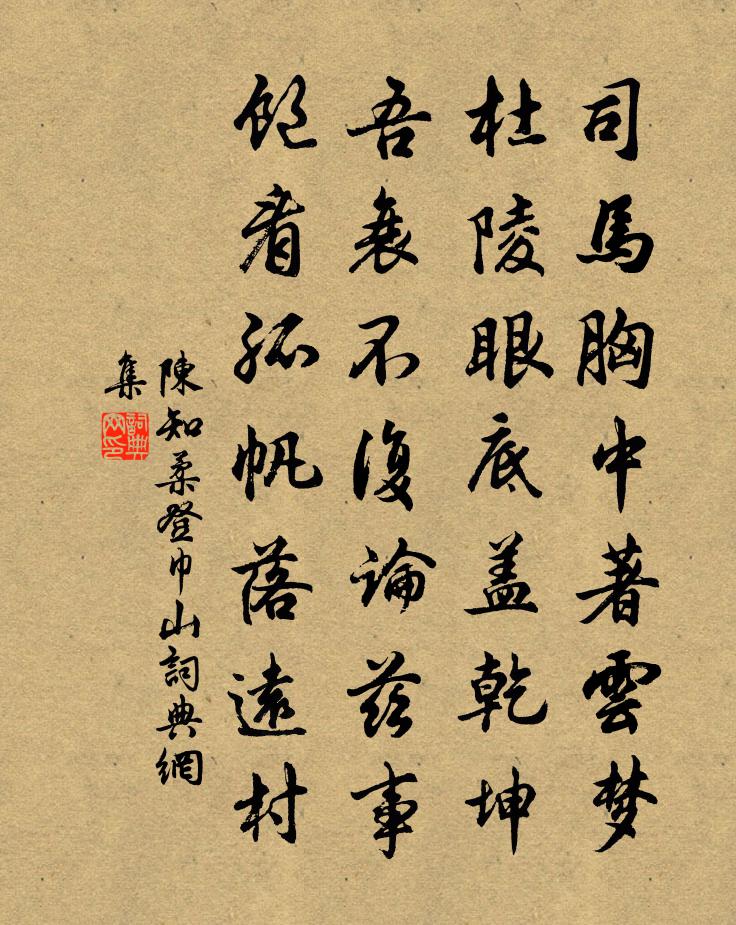 司馬胸中著雲梦
杜陵眼底盖乾坤
吾衰不復論兹事
飽看孤帆落遠村
陳知柔登巾山詞典網
集
詞典網印